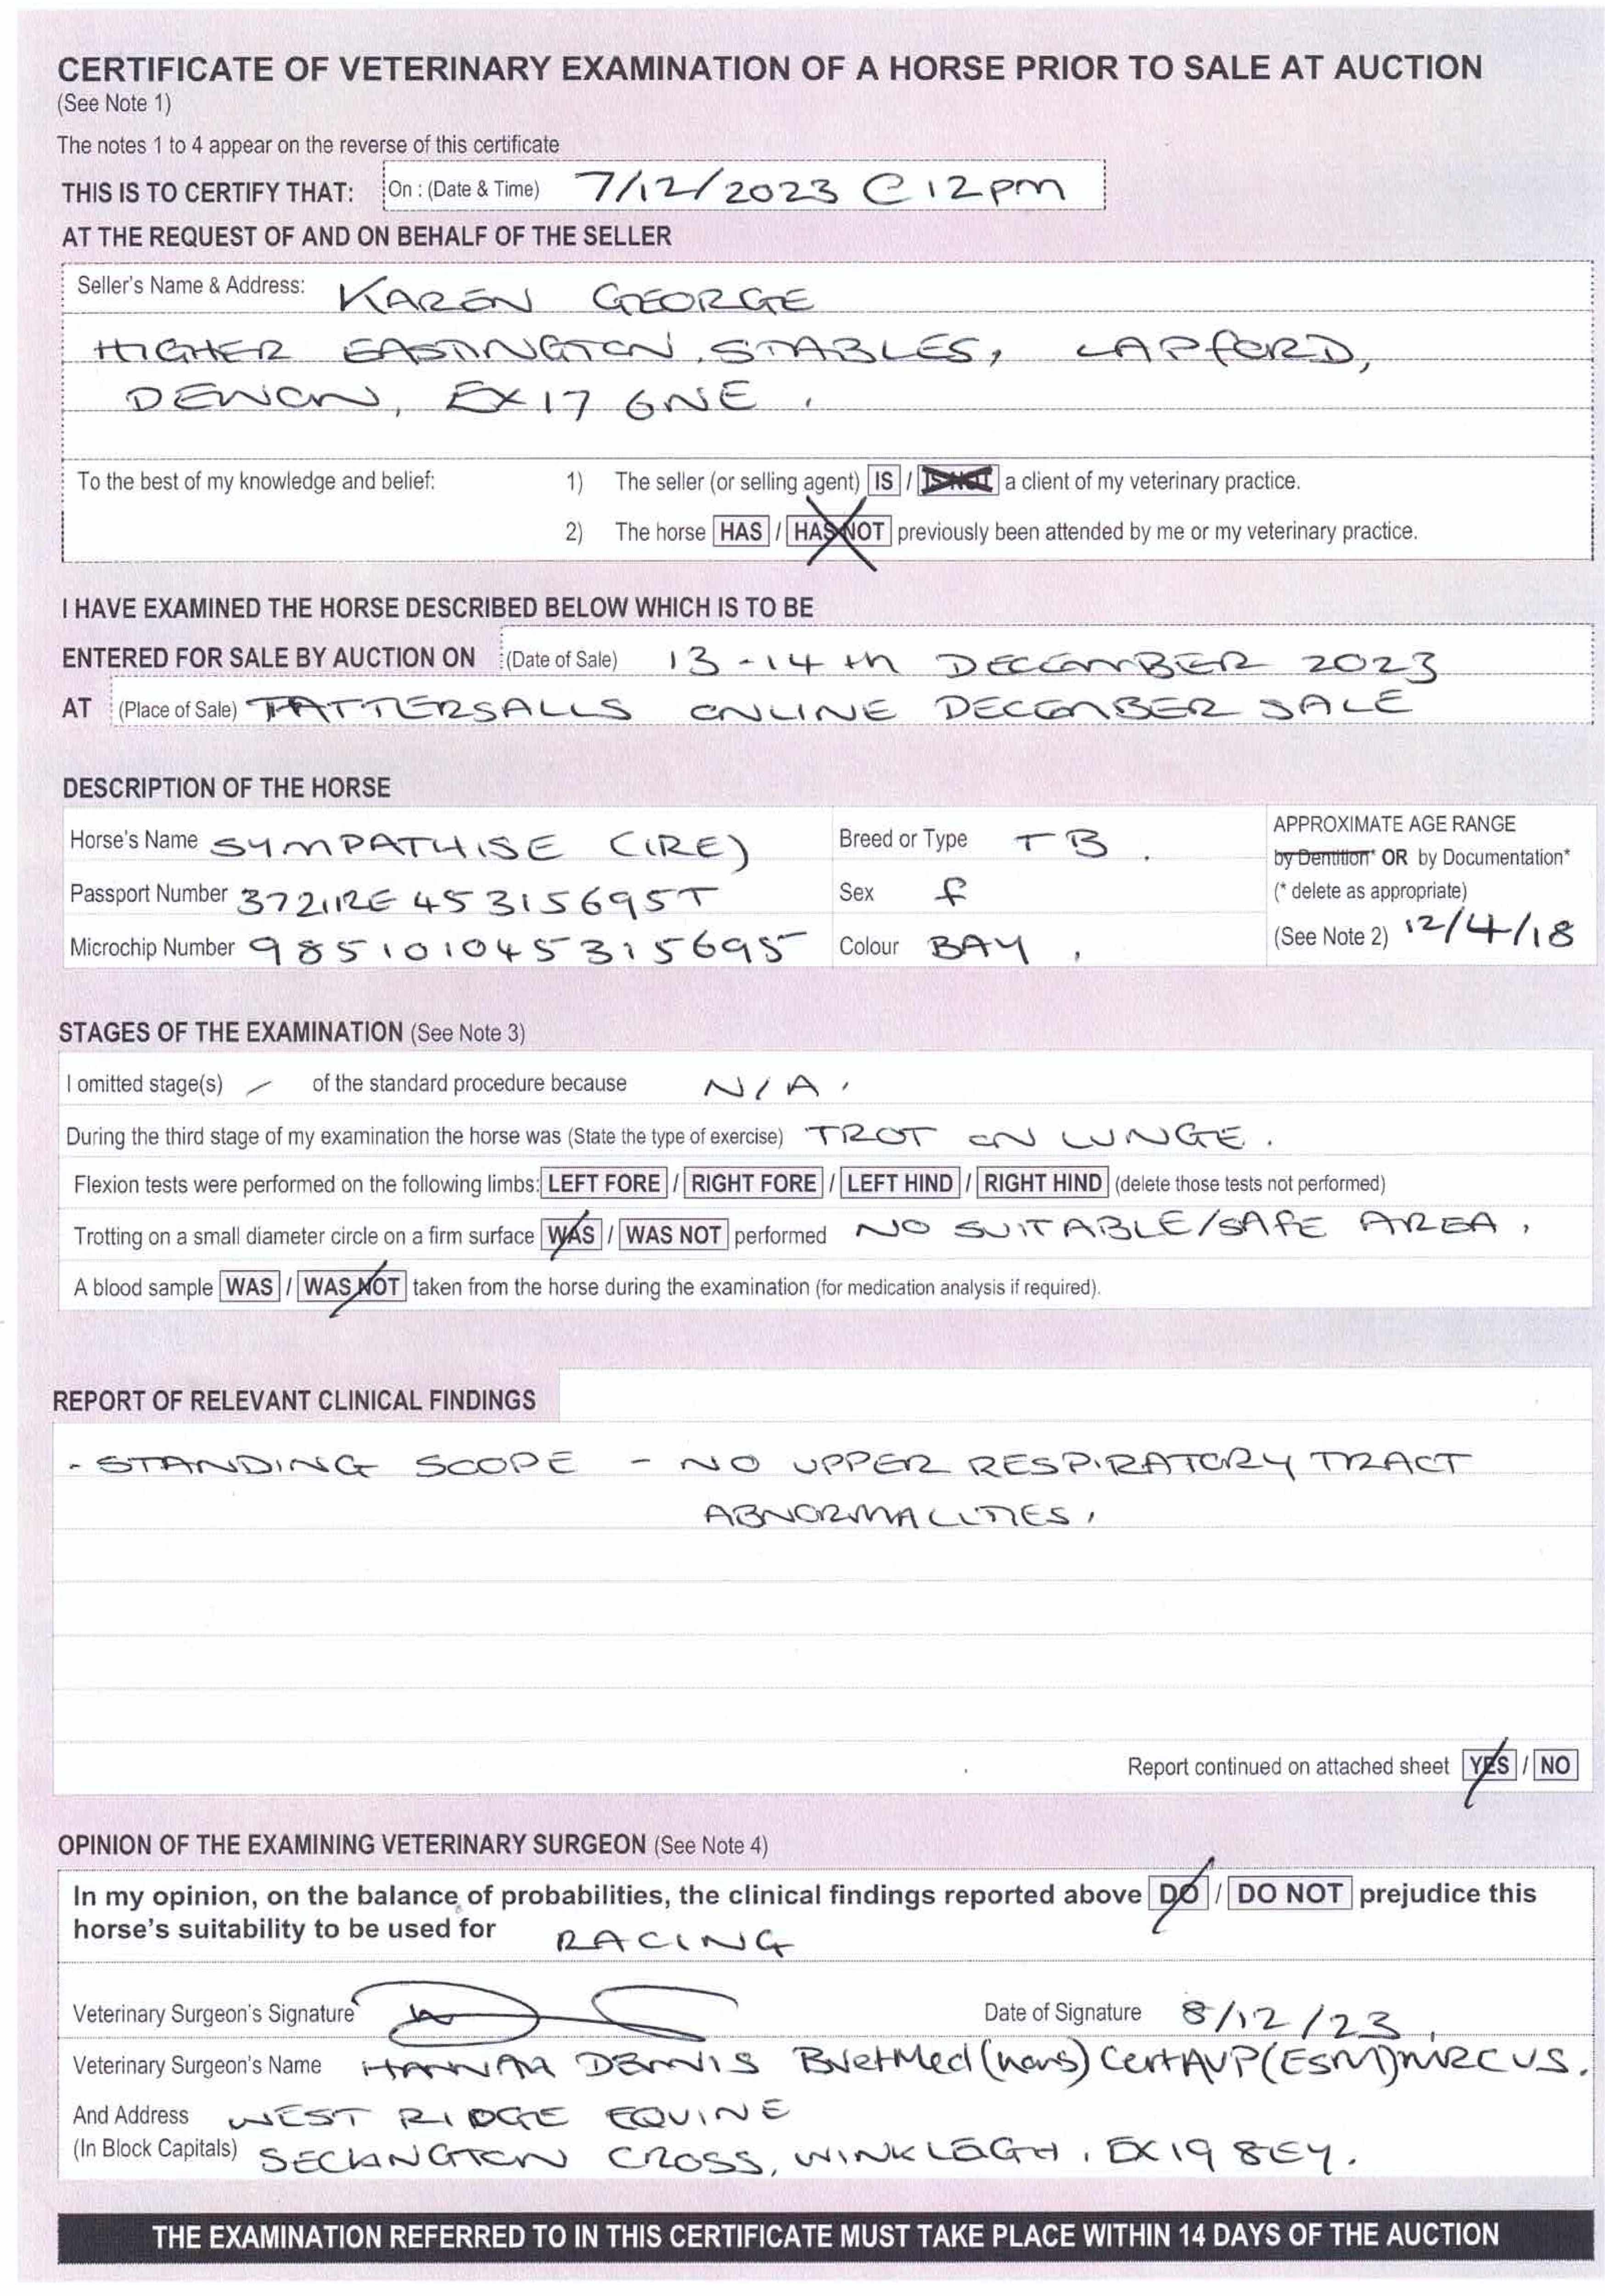 CERTIFICATE OF VETERINARY EXAMINATION OF A HORSE PRIOR TO SALE AT AUCTION
(See Note 1)
The notes 1 to 4 appear on the reverse of this certificate
THIS IS TO CERTIFY THAT: On : (Date & Time) 7/12/2023 @ 12pm
AT THE REQUEST OF AND ON BEHALF OF THE SELLER
Seller's Name & Address: KAREN GEORGE
HIGHER EASTINGTON, STABLES, LAPFORD,
DEVON, EX17 6NE.
To the best of my knowledge and belief: 1) The seller (or selling agent) IS / IS NOT a client of my veterinary practice.
2) The horse HAS / HAS NOT previously been attended by me or my veterinary practice.
I HAVE EXAMINED THE HORSE DESCRIBED BELOW WHICH IS TO BE
ENTERED FOR SALE BY AUCTION ON (Date of Sale) 13-14th DECEMBER 2023
AT (Place of Sale) TATTERSALLS ONLINE DECEMBER SALE
DESCRIPTION OF THE HORSE
Horse's Name SYMPATHISE (IRE) Breed or Type TB. APPROXIMATE AGE RANGE
by Dentition* OR by Documentation*
Passport Number 372IRE45315695T Sex f (* delete as appropriate)
Microchip Number 985101045315695 Colour BAY, (See Note 2) 12/4/18
STAGES OF THE EXAMINATION (See Note 3)
I omitted stage(s) / of the standard procedure because N/A.
During the third stage of my examination the horse was (State the type of exercise) TROT ON LUNGE.
Flexion tests were performed on the following limbs: LEFT FORE / RIGHT FORE / LEFT HIND / RIGHT HIND (delete those tests not performed)
Trotting on a small diameter circle on a firm surface WAS / WAS NOT performed NO SUITABLE/SAFE AREA,
A blood sample WAS / WAS NOT taken from the horse during the examination (for medication analysis if required).
REPORT OF RELEVANT CLINICAL FINDINGS
- STANDING SCOPE - NO UPPER RESPIRATORY TRACT
ABNORMALITIES.
Report continued on attached sheet YES / NO
OPINION OF THE EXAMINING VETERINARY SURGEON (See Note 4)
In my opinion, on the balance of probabilities, the clinical findings reported above DO / DO NOT prejudice this
horse's suitability to be used for RACING
Veterinary Surgeon's Signature Date of Signature 8/12/23,
Veterinary Surgeon's Name HANNAH DENNIS BVetMed(hons) CertAVP(ESM) MRCVS.
And Address WEST RIDGE EQUINE
(In Block Capitals) SECKINGTON CROSS, WINKLEIGH, EX19 8EY.
THE EXAMINATION REFERRED TO IN THIS CERTIFICATE MUST TAKE PLACE WITHIN 14 DAYS OF THE AUCTION